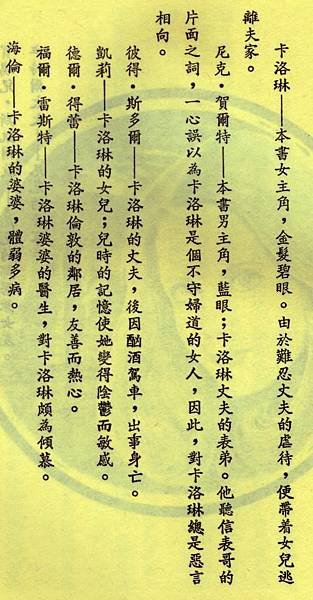 卡洛琳——本書女主角，金髮碧眼。由於難忍丈夫的虐待，便帶着女兒逃
離夫家。
尼克·賀爾特——本書男主角，藍眼；卡洛琳丈夫的表弟。他聽信表哥的
片面之詞，一心誤以為卡洛琳是個不守婦道的女人，因此，對卡洛琳總是惡言
相向。
彼得·斯多爾——卡洛琳的丈夫，後因酗酒駕車，出事身亡。
凱莉——卡洛琳的女兒；兒時的記憶使她變得陰鬱而敏感。
德爾·得蕾——卡洛琳倫敦的鄰居，友善而熱心。
福爾·雷斯特——卡洛琳婆婆的醫生，對卡洛琳頗為傾慕。
海倫——卡洛琳的婆婆，體弱多病。